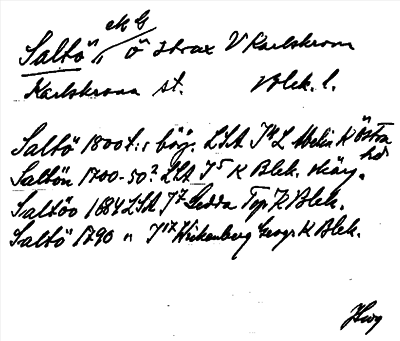 ek G
Saltö " ö strax V Karlskrona
Karlskrona st. Blek. l.
Saltö 1800 t:s börj. LSA J⁴ L Melin K Östra hd
Saltön 1700-50? LSA J⁵ K Blek. skärg.
Saltöo 1684 LSA J⁷ Sedda Top. K Blek.
Saltö 1790 " J¹⁷ Wickenberg Geogr K Blek.